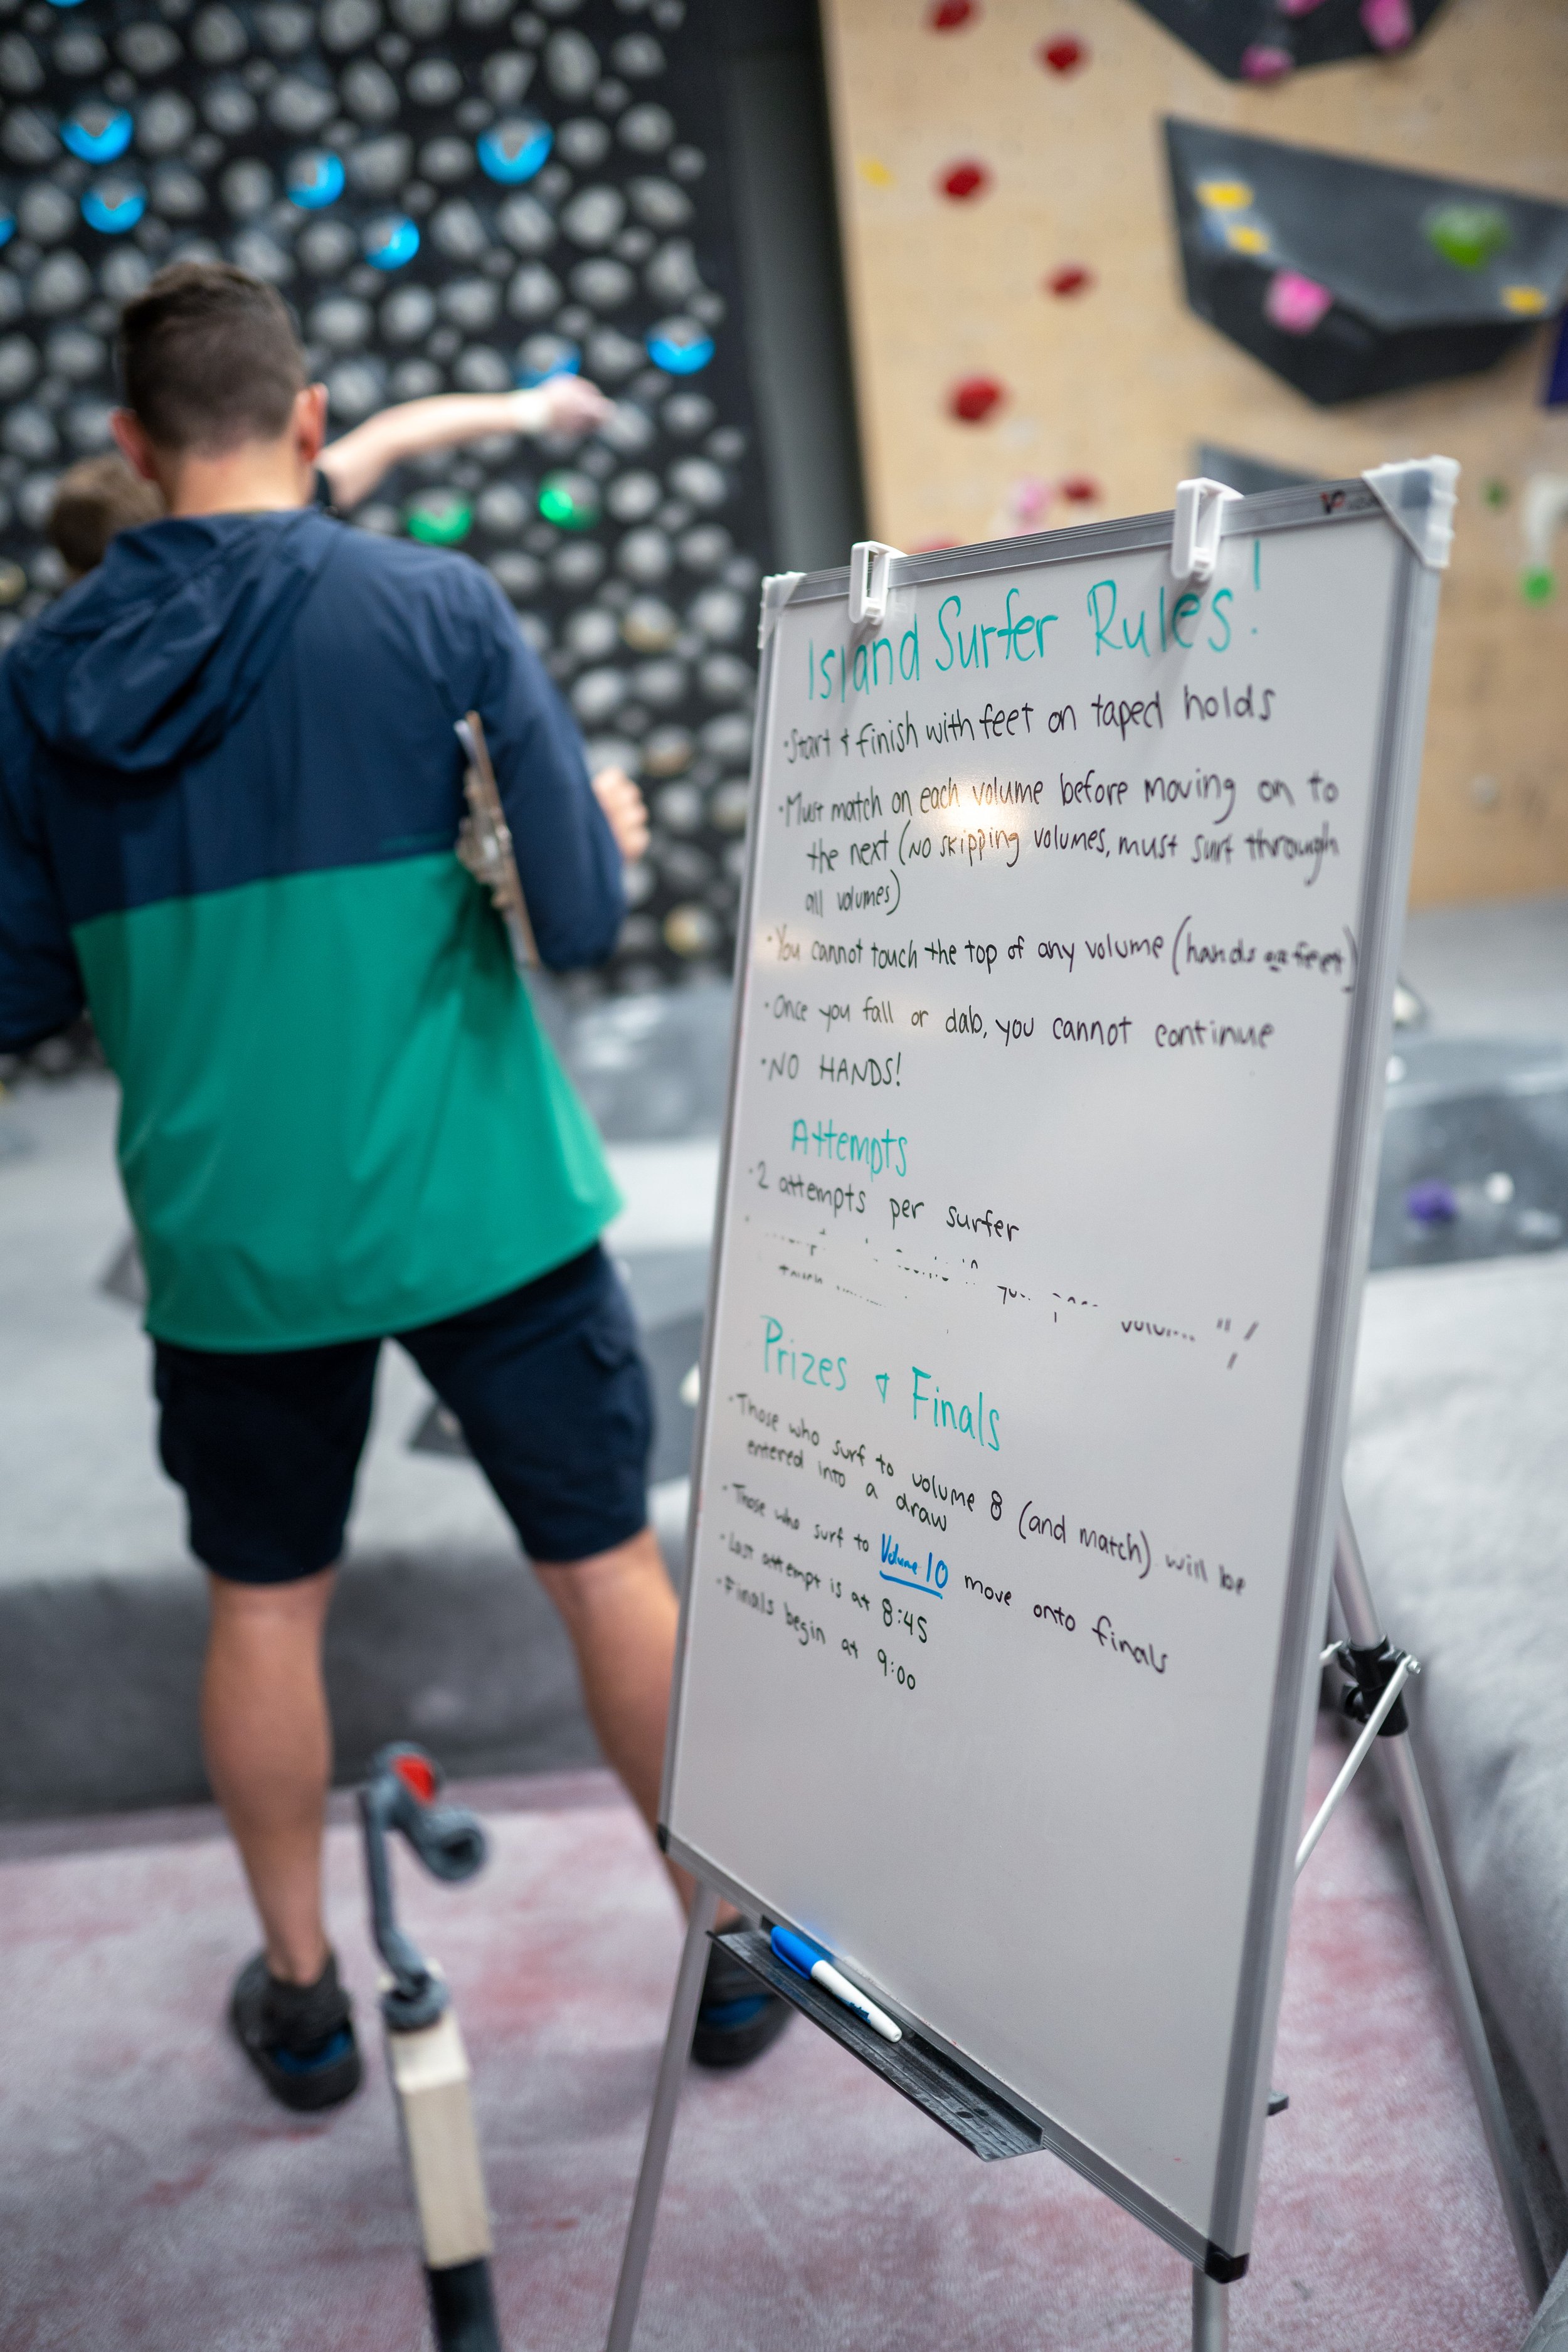 Island Surfer Rules!
·Start & finish with feet on taped holds
·Must match on each volume before moving on to
the next (NO skipping volumes, must surf through
all volumes)
·You cannot touch the top of any volume (hands or feet)
·Once you fall or dab, you cannot continue
·NO HANDS!
Attempts
·2 attempts per surfer
Prizes & Finals
·Those who surf to volume 8 (and match) will be
entered into a draw
·Those who surf to Volume 10 move onto finals
·Last attempt is at 8:45
·Finals begin at 9:00